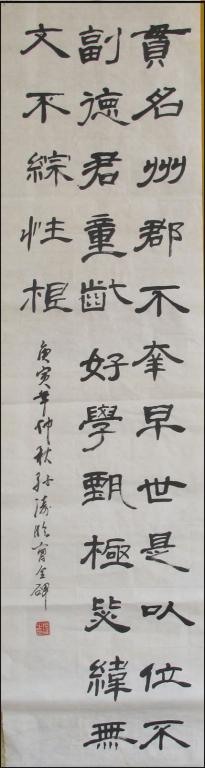 貫名州郡不幸早世是以位不
副德君童齔好學甄極毖緯無
文不綜性根
庚寅年仲秋孙涛临曹全碑